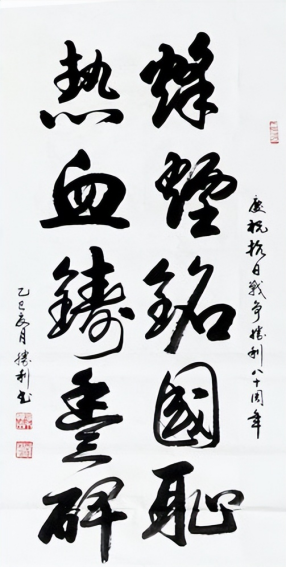 慶祝抗日戰爭勝利八十周年
烽煙銘國恥
熱血鑄豐碑
乙巳夏月勝利書